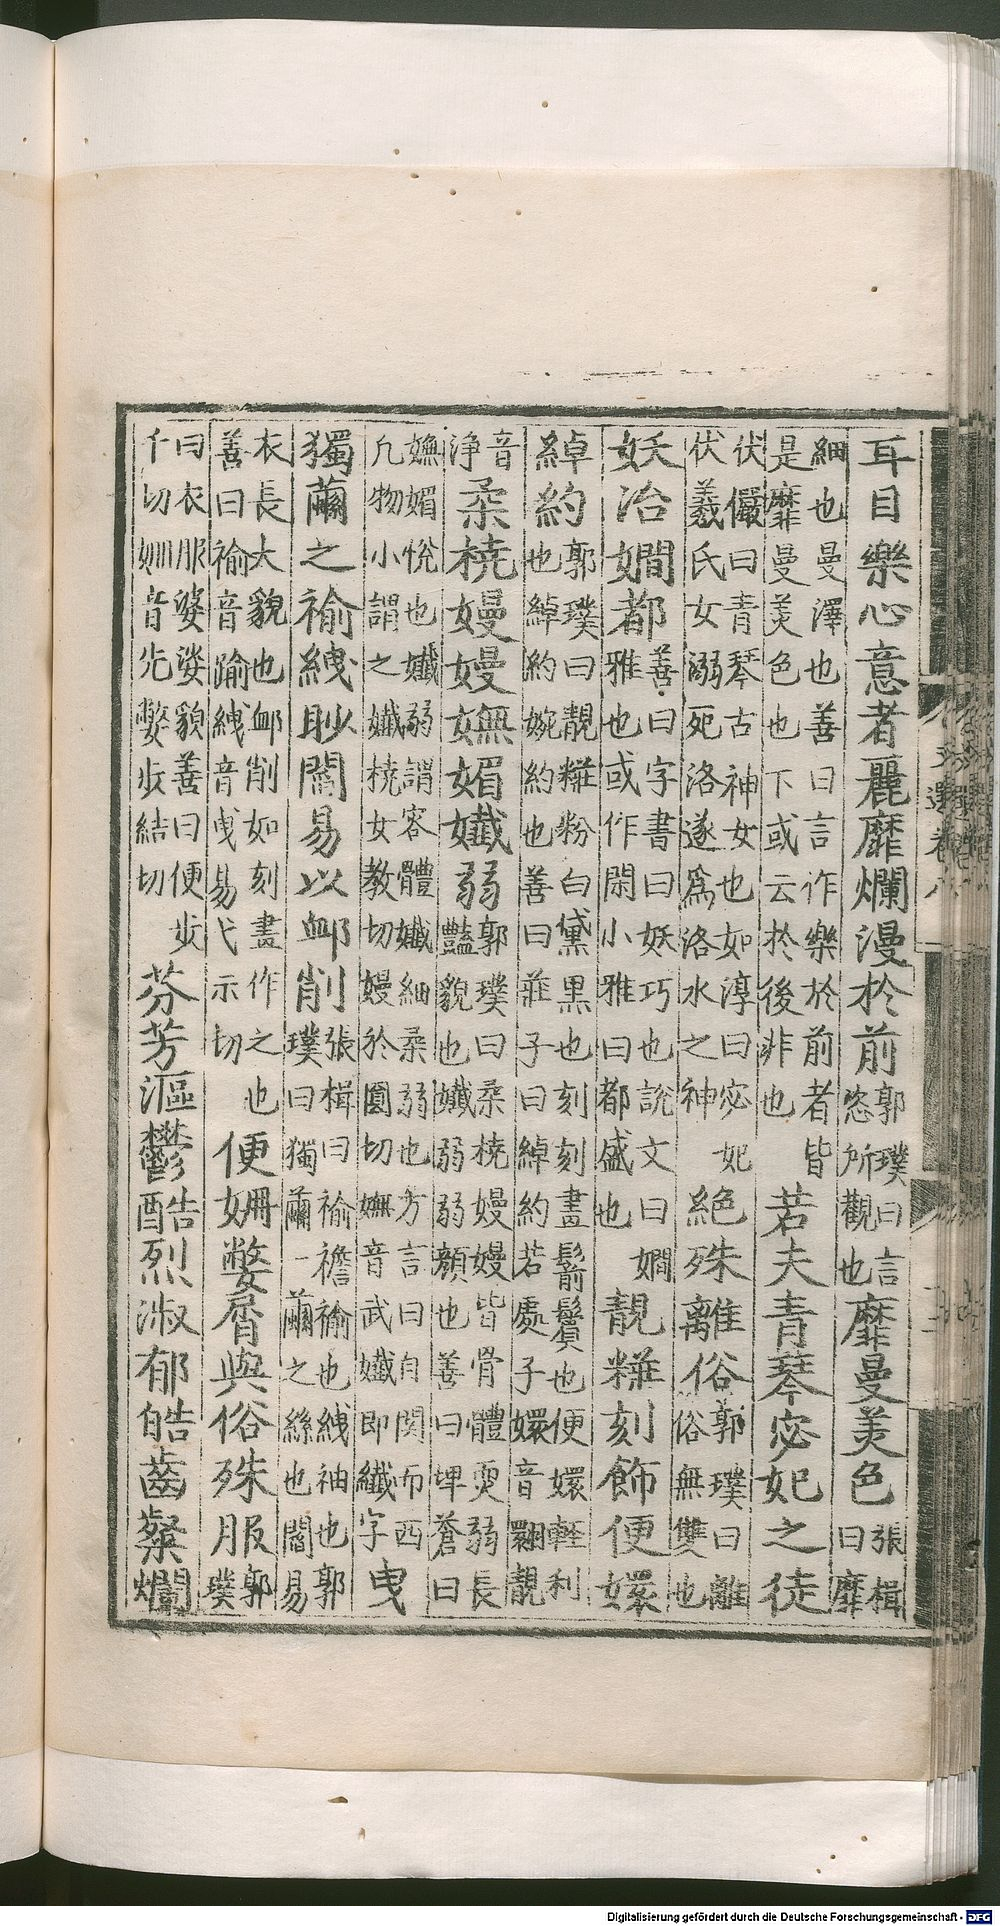 耳目樂心意者麗靡爛漫於前郭璞曰言恣所觀也靡曼美色張楫曰靡
細也曼澤也善曰言作樂於前者皆是靡曼美色也下或云於後非也若夫青琴宓妃之徒
伏儼曰青琴古神女也如淳曰宓妃伏羲氏女溺死洛遂爲洛水之神絕殊離俗郭璞曰離俗無雙也
妖冶嫺都善曰字書曰妖巧也說文曰嫺雅也或作閑小雅曰都盛也靚糚刻飾便嬛
綽約郭璞曰靚糚粉白黛黑也刻刻畫鬋鬢也便嬛輕利也綽約婉約也善曰莊子曰綽約若處子嬛音翾靚
音浄柔橈嫚嫚嫵媚孅弱郭璞曰柔橈嫚嫚皆骨體耎弱長豔貌也孅弱弱顏也善曰埤蒼曰
嫵媚悅也孅弱謂容體孅細柔弱也方言曰自関而西凢物小謂之孅橈女教切嫚於圓切嫵音武孅即纖字曳
獨繭之褕絏眇閻易以卹削張楫曰褕襜褕也絏袖也郭璞曰獨繭一繭之絲也閻易
衣長大貌也卹削如刻畫作之也善曰褕音踰絏音曳易弋示切便姍嫳屑與俗殊服郭璞
曰衣服婆娑貌善曰便步千切姍音先嫳步結切芬芳漚鬱酷烈淑郁皓齒粲爛
文選卷八
Digitalisierung gefördert durch die Deutsche Forschungsgemeinschaft - DFG